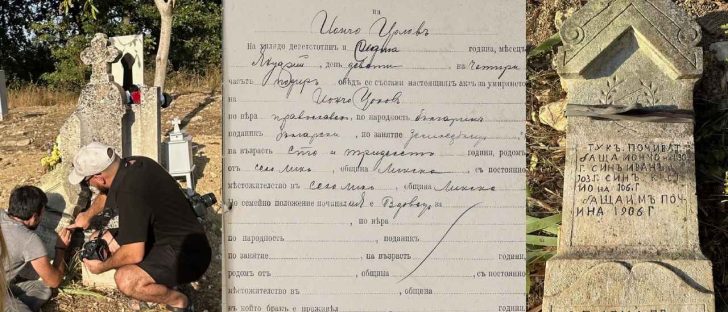 на
Йончо Цоловъ
На хилядо деветстотинъ и седма година, месецъ
Януарий, день девети въ четири
часътъ подиръ обѣдъ се състави настоящиятъ актъ за умирането
на Йончо Цоловъ
по вѣра православенъ, по народность българинъ
поданикъ български, по занятие земледѣлецъ
на възрасть сто и тридесеть години, родомъ
отъ село Лика, община Ликска, съ постоянно
мѣстожителство въ село Лика, община Ликска
По семейно положение починалия е вдовецъ за
, по вѣра
по народность, поданикъ
по занятие, на възрасть години,
родомъ отъ, община, съ постоянно
мѣстожителство въ, община
въ който бракъ е преживѣлъ години.
ТУКЪ ПОЧИВАТ
БАЩА ЙОНЧО
Г. СИНЪ ИВАН
103 Г. СИНЪ
НА 106 Г
БАЩА ИМ ПОЧ
ИНА 1906 Г